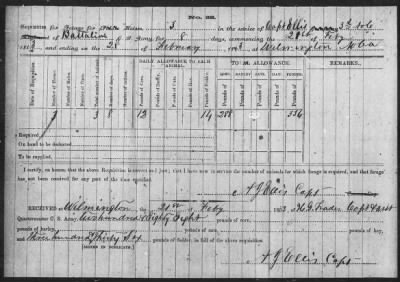 No. 33.
Requisition for Forage for Public Horses 3 in the service of Capt Ellis 3d
Battalion C. S. Army for 8 days, commencing the 21st of Feby
1863 and ending on the 28 of February 1863 at Wilmington N Ca
Date of Requisition. Number of Horses. Number of Mules. Total Number of Animals. Number of Days. DAILY ALLOWANCE TO EACH ANIMAL. TOTAL ALLOWANCE. REMARKS.
Pounds of Corn. Pounds of Barley. Pounds of Oats. Pounds of Hay. Pounds of Fodder. CORN. BARLEY. OATS. HAY. FODDER.
3 3 8 12 14 288 336
Required,
On hand to be deducted
To be supplied,
I certify, on honor, that the above Requisition is correct and just; that I have now in service the number of animals for which forage is required, and that forage
has not been received for any part of the time specified.
A J Ellis Capt
RECEIVED Wilmington 21st of Feby 1863, of Capt & Asst
Quartermaster C. S. Army, two hundred & Eighty Eight pounds of corn,
pounds of barley, pounds of oats, pounds of hay,
Three hundred & Thirty Six pounds of fodder, in full of the above requisition
(SIGNED IN DUPLICATE.)
A J Ellis Capt